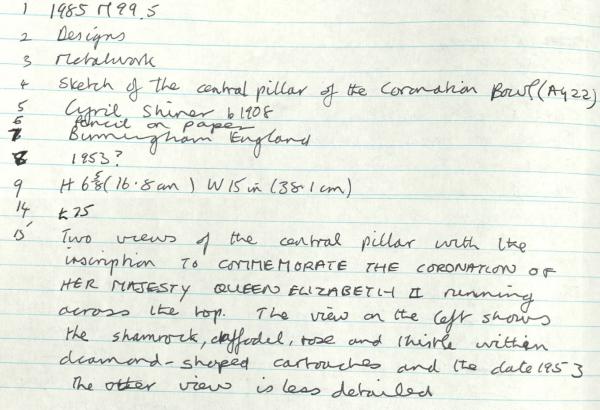 1 1985 M99.5
2 Designs
3 Metalwork
4 Sketch of the central pillar of the Coronation Bowl (A422)
5 Cyril Shiner b1908
6 Pencil on paper
7 Birmingham England
8 1953?
9 H 6 5/8 (16.8 cm) W 15 in (38.1 cm)
14 £75
15 Two views of the central pillar with the
inscription TO COMMEMORATE THE CORONATION OF
HER MAJESTY QUEEN ELIZABETH II running
across the top. The view on the left shows
the shamrock, daffodel, rose and thistle within
diamond-shaped cartouches and the date 1953
The other view is less detailed